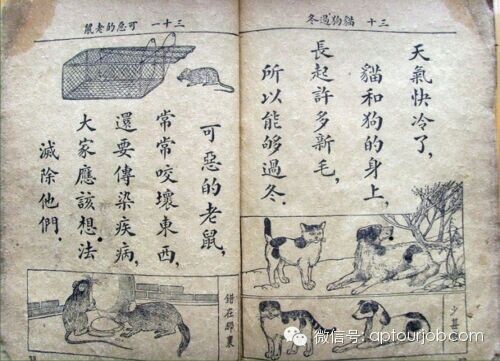 三十 貓狗過冬
天氣快冷了,
貓和狗的身上,
長起許多新毛,
所以能够過冬.
少
三十一 可惡的老鼠
可惡的老鼠,
常常咬壞東西,
還要傳染疾病,
大家應該想法
滅除他們.
錯在那裏
微信号: aptourjob.com